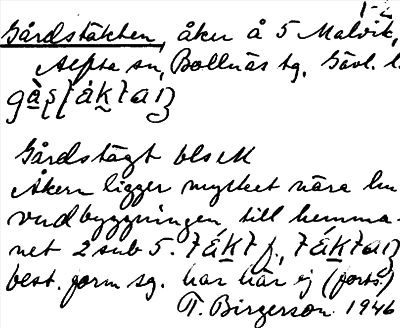 1-2
Gårdstäkten, åker å 5 Malvik,
Alfta sn, Bollnäs tg, Gävl. l.
Gårdstägt blsM
Åkern ligger mycket nära hu
vudbyggningen till hemma-
net 2 sub 5.
best. form sg. har här ej (forts.)
T. Birgerson 1946